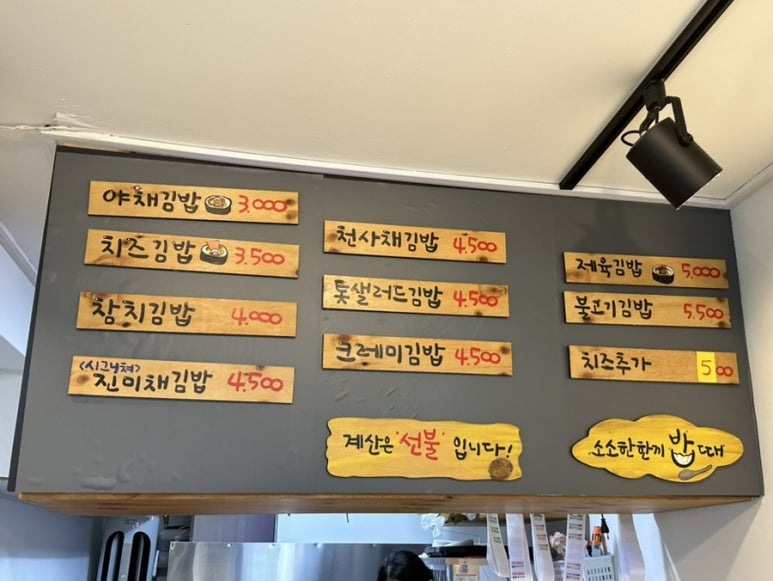 야채김밥 3.000
치즈김밥 3.500
참치김밥 4.000
<시그니쳐>
진미채김밥 4.500
천사채김밥 4.500
톳샐러드김밥 4.500
크레미김밥 4.500
계산은 '선불' 입니다!
제육김밥 5.000
불고기김밥 5.500
치즈추가 500
소소한한끼 밥때